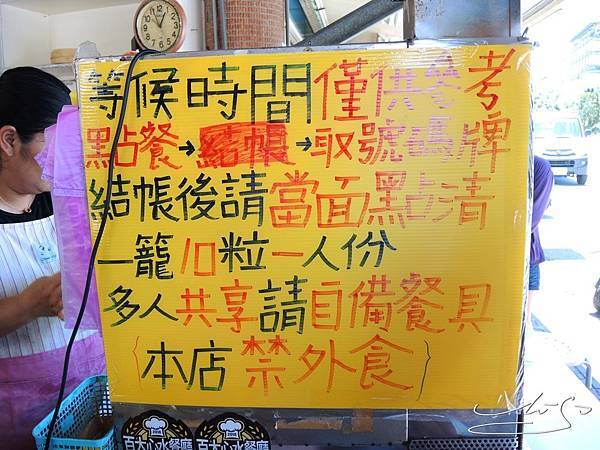 等候時間僅供參考
點餐→結帳→取號碼牌
結帳後請當面點清
一籠10粒一人份
多人共享請自備餐具
{本店禁外食}
百大心水餐廳
百大心水餐廳